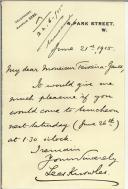 PARK STREET,
W.
June 21st 1915.
My dear Monsieur Teixeira-Gomes,
It would give me
much pleasure if you
would come to luncheon
next Saturday (June 26th)
at 1.30 o'clock
I remain
Yours sincerely
Lees Knowles